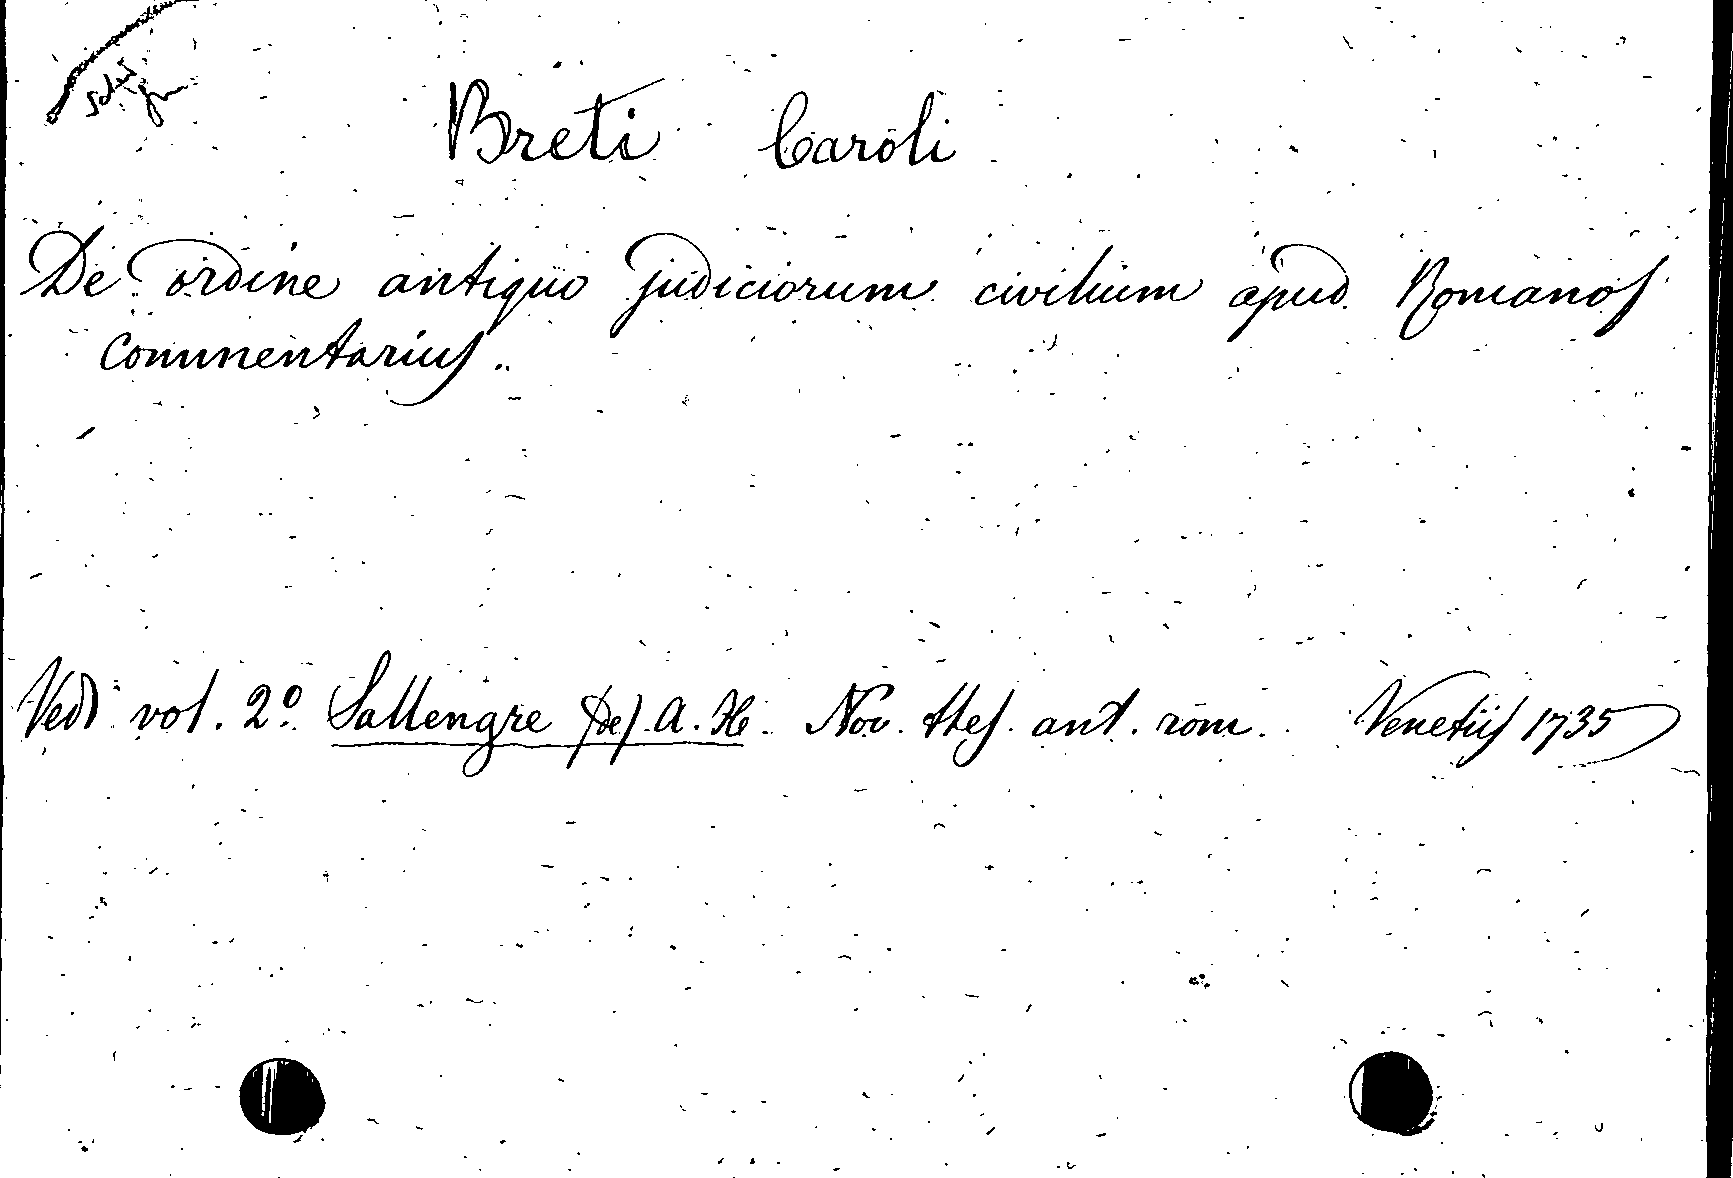 Breti Caroli
De ordine antiquo judiciorum civilium apud Romanos
commentarius.
Vedi vol. 2º Sallengre (de) A. H. Nov. thes. ant. rom. Venetiis 1735